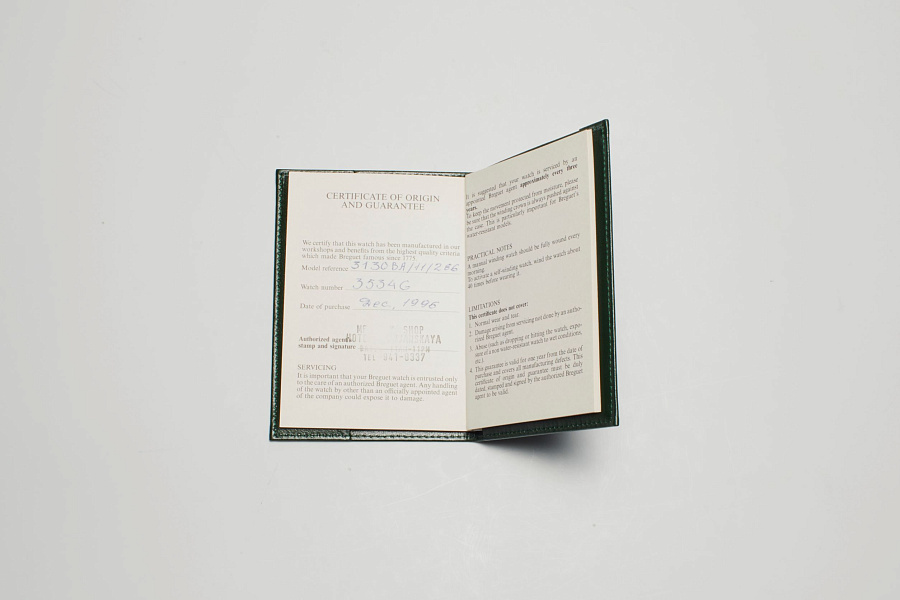 CERTIFICATE OF ORIGIN
AND GUARANTEE
We certify that this watch has been manufactured in our
workshops and benefits from the highest quality criteria
which made Breguet famous since 1775
Model reference 3130BA/11/286
Watch number 3534G
Date of purchase Dec. 1996
SHOP
Authorized agent's
stamp and signature
TEL
SERVICING
It is important that your Breguet watch is entrusted only
to the care of an authorized Breguet agent. Any handling
of the watch by other than an officially appointed agent
of the company could expose it to damage.
It is suggested that your watch is serviced by an
appointed Breguet agent approximately every three
years.
To keep the movement protected from moisture, please
be sure that the winding crown is always pushed against
the case. This is particularly important for Breguet's
water-resistant models.
PRACTICAL NOTES
A manual winding watch should be fully wound every
morning.
To activate a self-winding watch, wind the watch about
40 times before wearing it.
LIMITATIONS
This certificate does not cover:
1. Normal wear and tear.
2. Damage arising from servicing not done by an autho-
rized Breguet agent.
3. Abuse (such as dropping or hitting the watch, expo-
sure of a non water-resistant watch to wet conditions,
etc.).
4. This guarantee is valid for one year from the date of
purchase and covers all manufacturing defects. This
certificate of origin and guarantee must be duly
dated, stamped and signed by the authorized Breguet
agent to be valid.